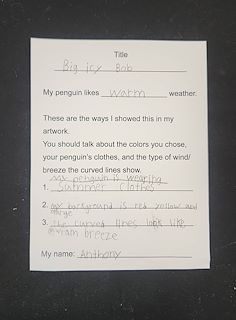 Title
Big icy Bob
My penguin likes warm weather.
These are the ways I showed this in my
artwork.
You should talk about the colors you chose,
your penguin's clothes, and the type of wind/
breeze the curved lines show.
my penguin is wearing
1. Summer Clothes
2. my background is red yellow and
orange
3. the curved lines look like
a warm breeze
My name: Anthony